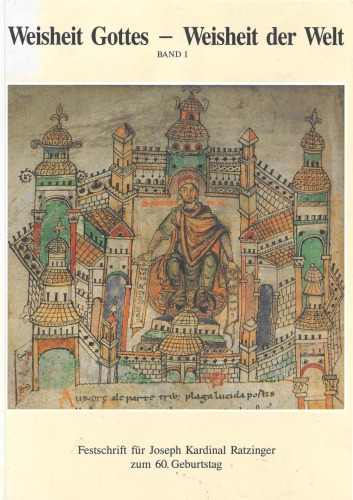 Weisheit Gottes – Weisheit der Welt
BAND I
Aurore de parte trib; plaga lucida portis
Festschrift für Joseph Kardinal Ratzinger
zum 60. Geburtstag